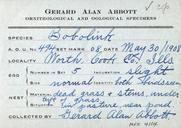 GERARD ALAN ABBOTT
ORNITHOLOGICAL AND OOLOGICAL SPECIMENS
SPECIES Bobolink
A.O.U. No. 494 SET MARK DATE May 30/1908
LOCALITY North, Cook Co. Ills
EGG NUMBER IN SET 5 INCUBATION slight
SIZE normal IDENTITY
NEST MATERIAL dead grass & stems, under
of grass
SITUATION in pasture near pond
COLLECTED BY Gerard Alan Abbott